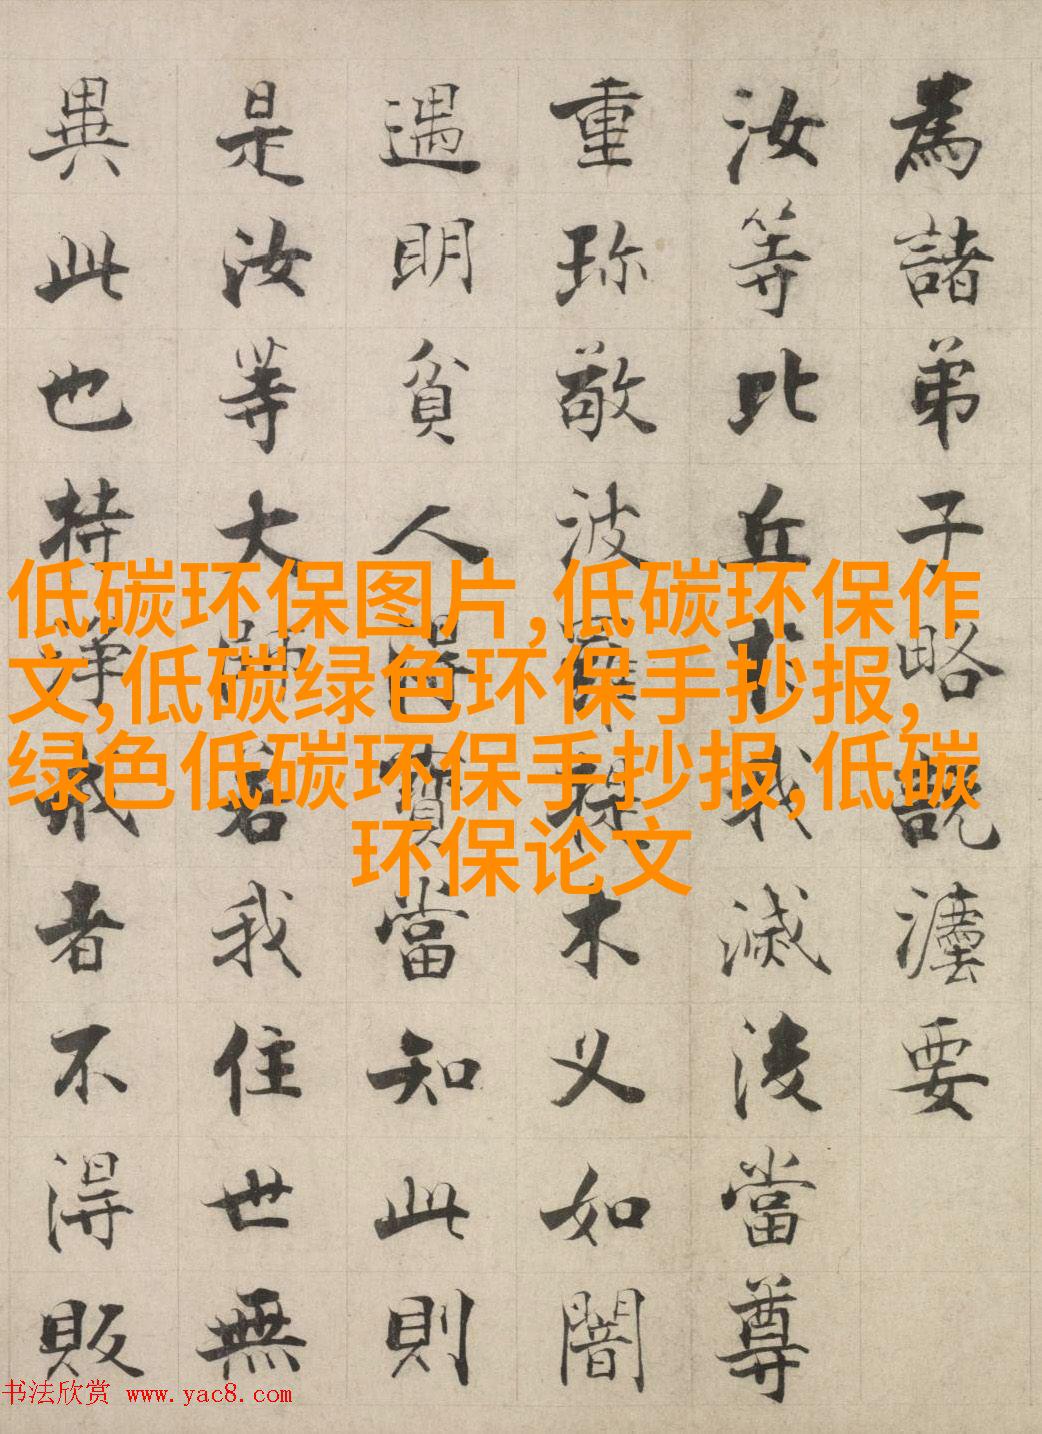 為諸弟子略說法要
汝等比丘於我滅後當尊
重珎敬波羅提木叉如闇
遇明貧人得寶當知此則
是汝等大師若我住世無
異此也持淨戒者不得販
低碳环保图片,低碳环保作
文,低碳绿色环保手抄报,
绿色低碳环保手抄报,低碳
环保论文
书法欣赏 www.yac8.com